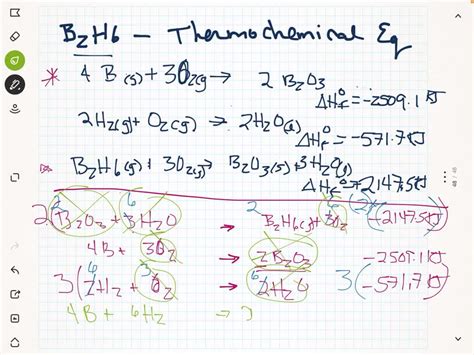 B2H6 - Thermochemical Eq
* 4 B(s) + 3O2(g) → 2 B2O3
ΔHf° = -2509.1 kJ
2H2(g) + O2(g) → 2H2O(l)
ΔHf° = -571.7 kJ
B2H6(g) + 3O2(g) → B2O3(s) + 3H2O(l)
ΔHf° = -2147.5 kJ
2 (B2O3 + 3H2O → B2H6(g) + 3O2 (-2147.5 kJ)
2 6 2 6 2
4B + 3O2 → 2B2O3 -2509.1 kJ
3 (2H2 + O2 → 2H2O 3 (-571.7 kJ)
6 3 6
4B + 6H2 →